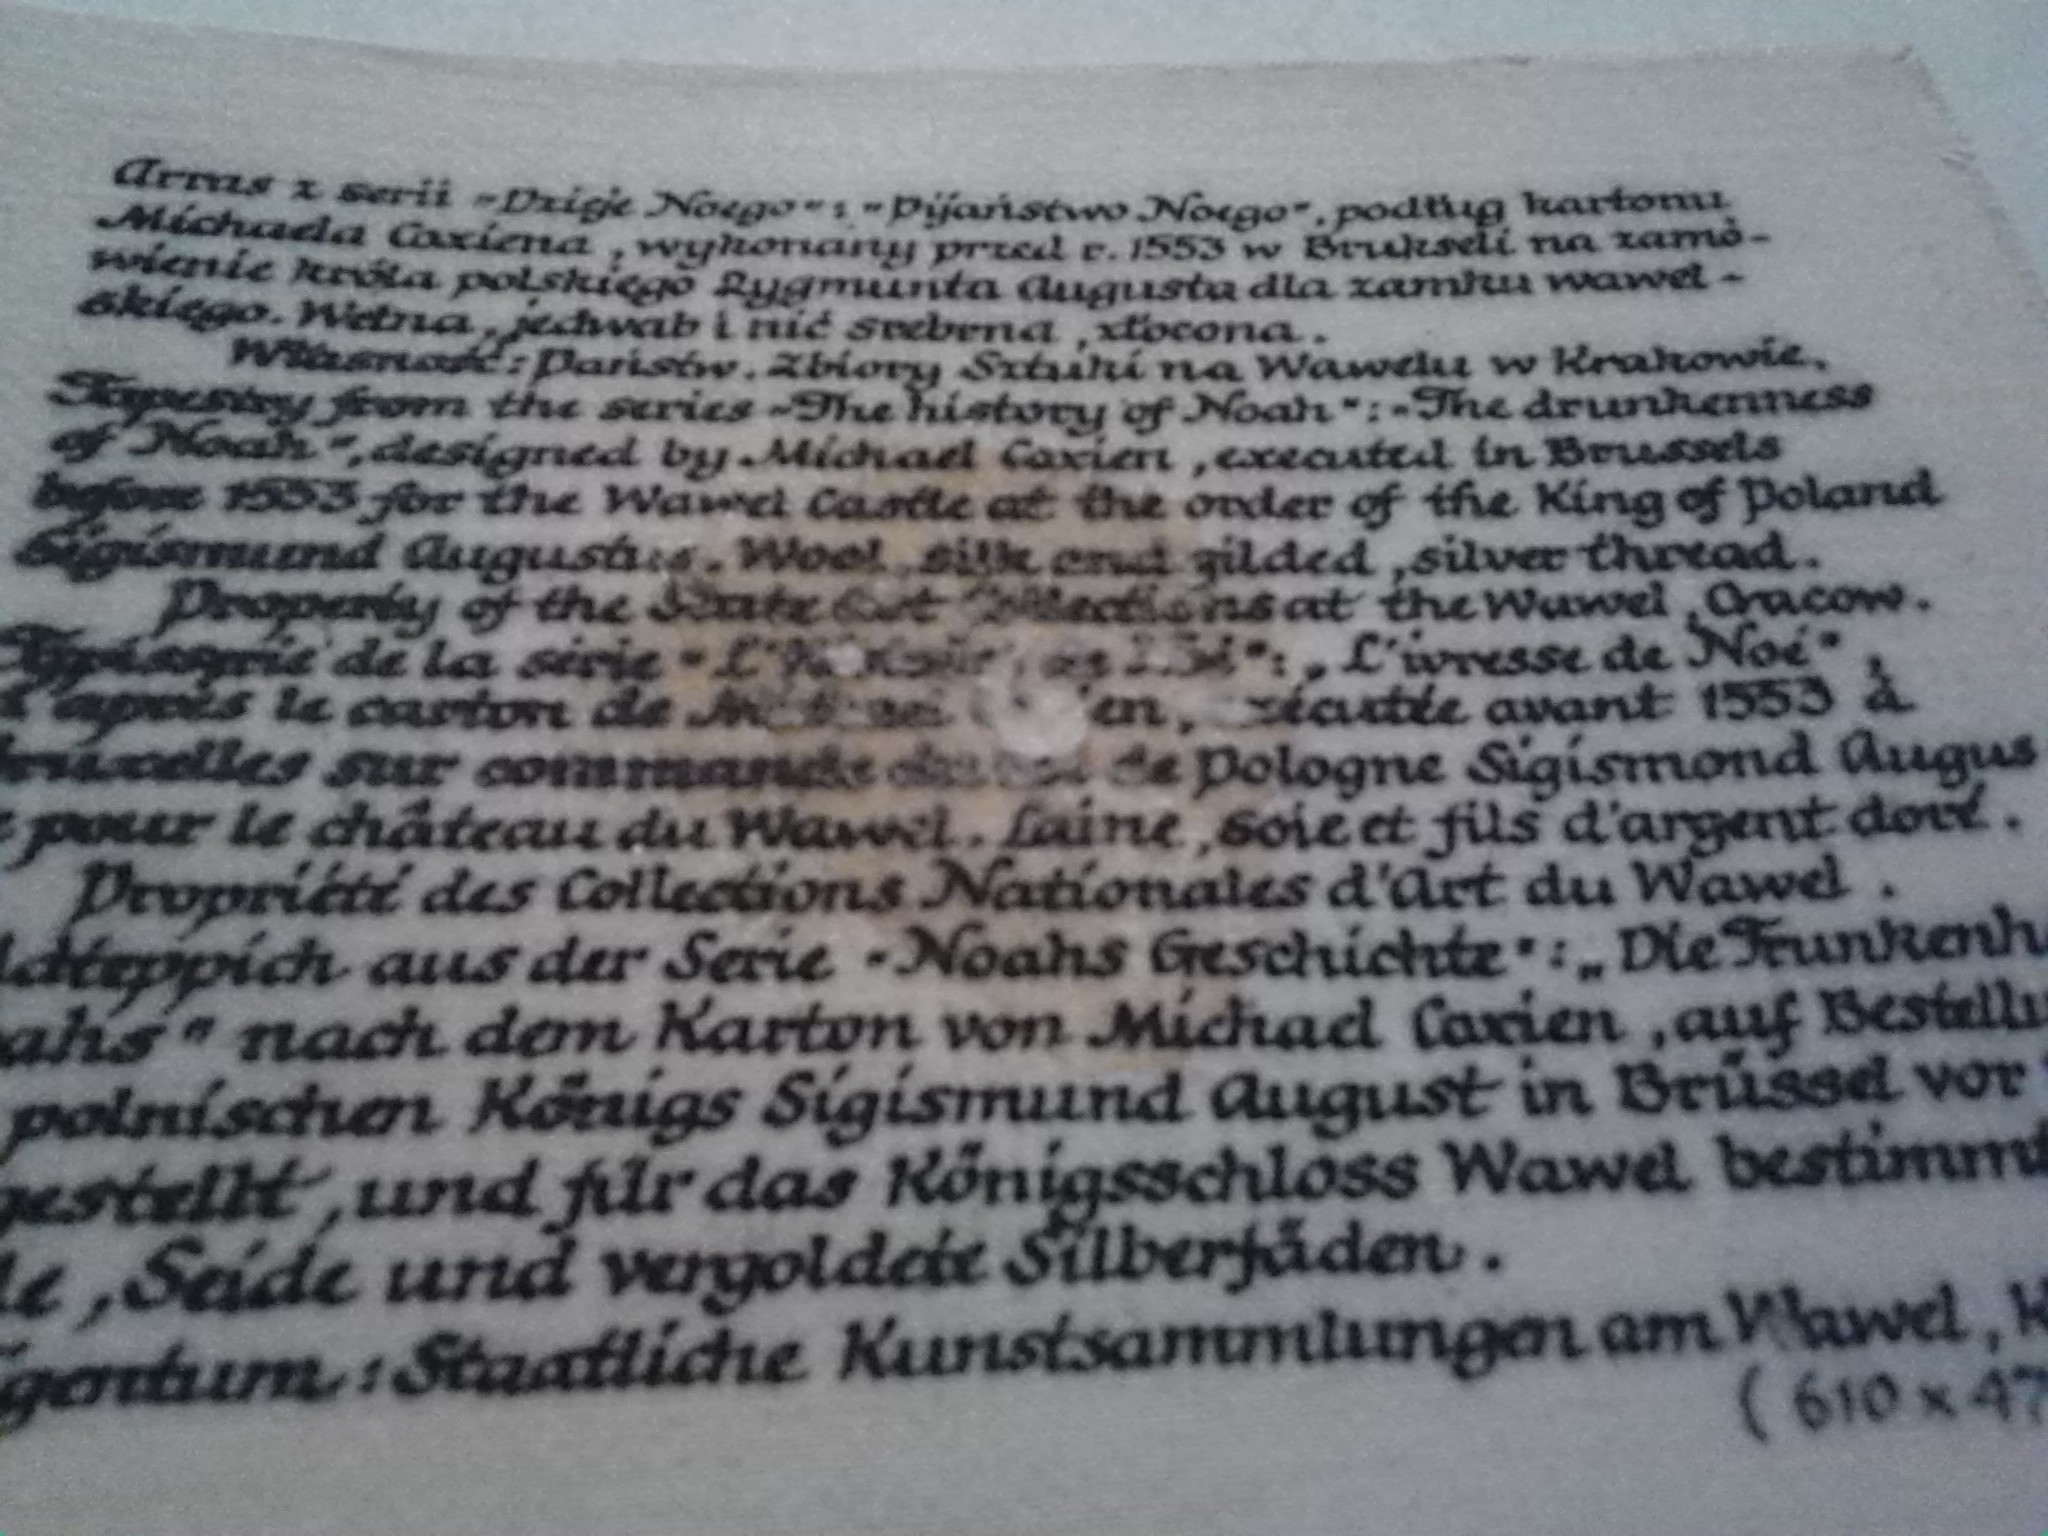 Arras z serii "Dzieje Noego": "Pijaństwo Noego", podług kartonu
Michaela Coxiena, wykonany przed r. 1553 w Brukseli na zamó-
wienie króla polskiego Zygmunta Augusta dla zamku wawel-
skiego. Wełna, jedwab i nić srebrna, złocona.
Własność: Państw. Zbiory Sztuki na Wawelu w Krakowie.
Tapestry from the series "The history of Noah": "The drunkenness
of Noah", designed by Michael Coxien, executed in Brussels
before 1553 for the Wawel Castle at the order of the King of Poland
Sigismund Augustus. Wool, silk and gilded, silver thread.
Property of the State Art Collections at the Wawel, Cracow.
Tapisserie de la série "L' ": "L'ivresse de Noé",
d'après le carton de en, exécutée avant 1553 à
ruxelles sur commande de Pologne Sigismond Augus
pour le château du Wawel. Laine, soie et fils d'argent doré.
Propriété des Collections Nationales d'Art du Wawel.
ldteppich aus der Serie "Noahs Geschichte": "Die Trunkenh
ahs" nach dem Karton von Michael Coxien, auf Bestellu
polnischen Königs Sigismund August in Brüssel vor
gestellt, und für das Königsschloss Wawel bestimmt
le, Seide und vergoldete Silberfäden.
igentum: Staatliche Kunstsammlungen am Wawel, K
(610 x 47